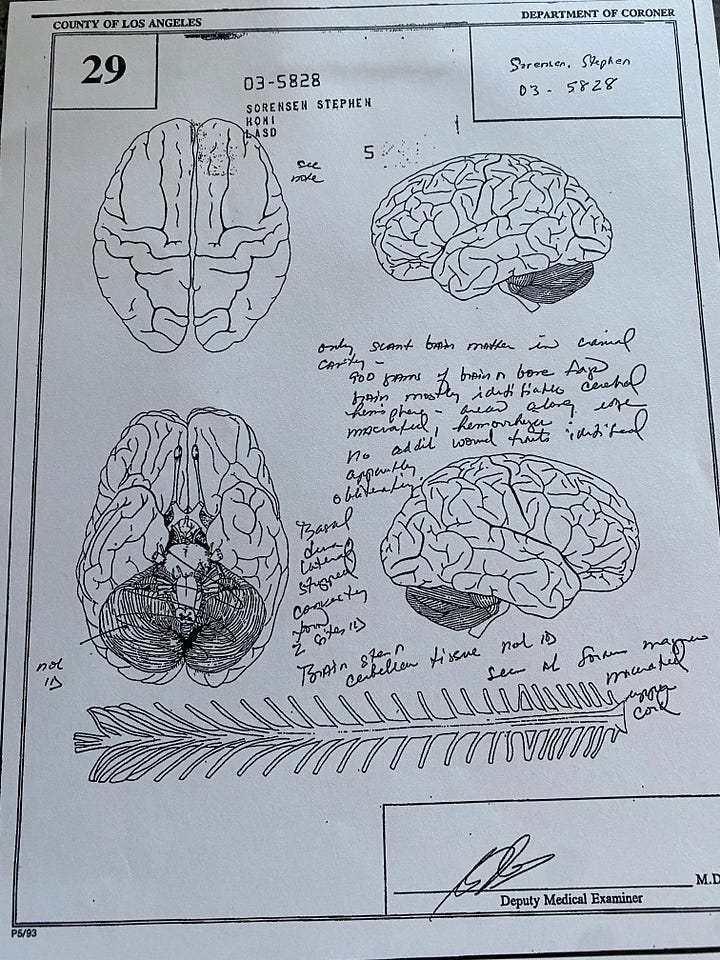 COUNTY OF LOS ANGELES
DEPARTMENT OF CORONER
29
03-5828
SORENSEN STEPHEN
HOMI
LASD
Sorensen, Stephen
03 - 5828
see
note
5
only scant brain matter in cranial
cavity -
900 grams of brain bone frags
brain mostly cerebral
hemisphere - areas along
macerated, hemorrhagic
no addit wound
apparently
Basal
dura
lateral
stripped
convexity
torn
2 sites
not
ID
Brain stem
cerebellar tissue not ID
seen at foramen magnum
macerated
upper
cord
M.D
Deputy Medical Examiner
P5/93